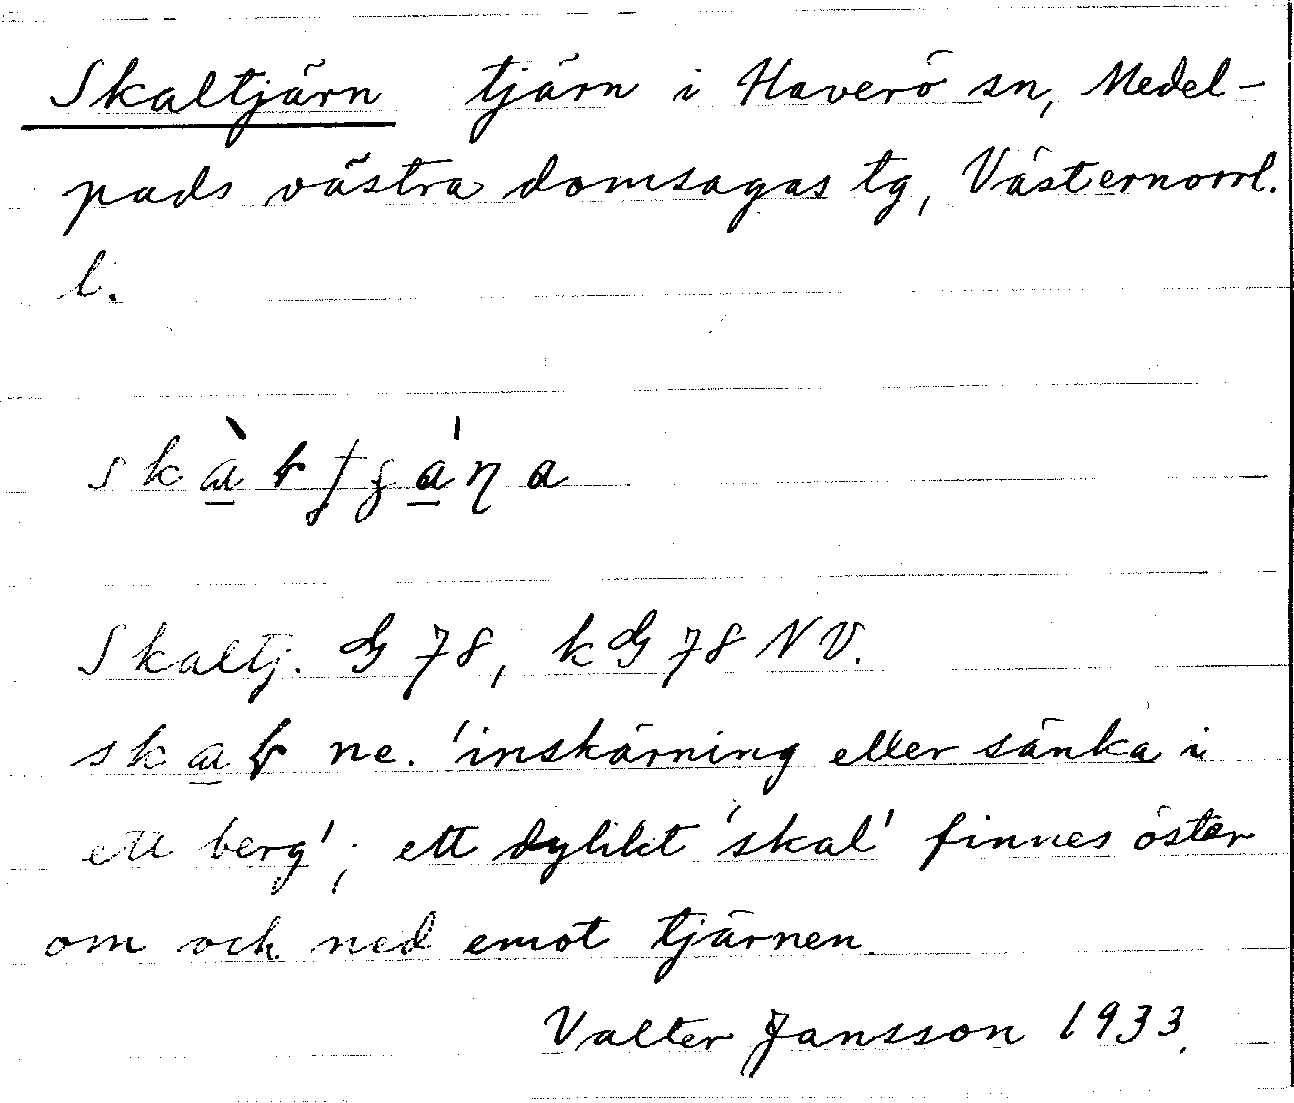 Skaltjärn tjärn i Haverö sn, Medel-
pads västra domsagas tg, Västernorrl.
l.
Skaltj. G 78, kG 78 NV.
ne. 'inskärning eller sänka i
ett berg'; ett dylikt 'skal' finnes öster
om och ned emot tjärnen.
Valter Jansson 1933.